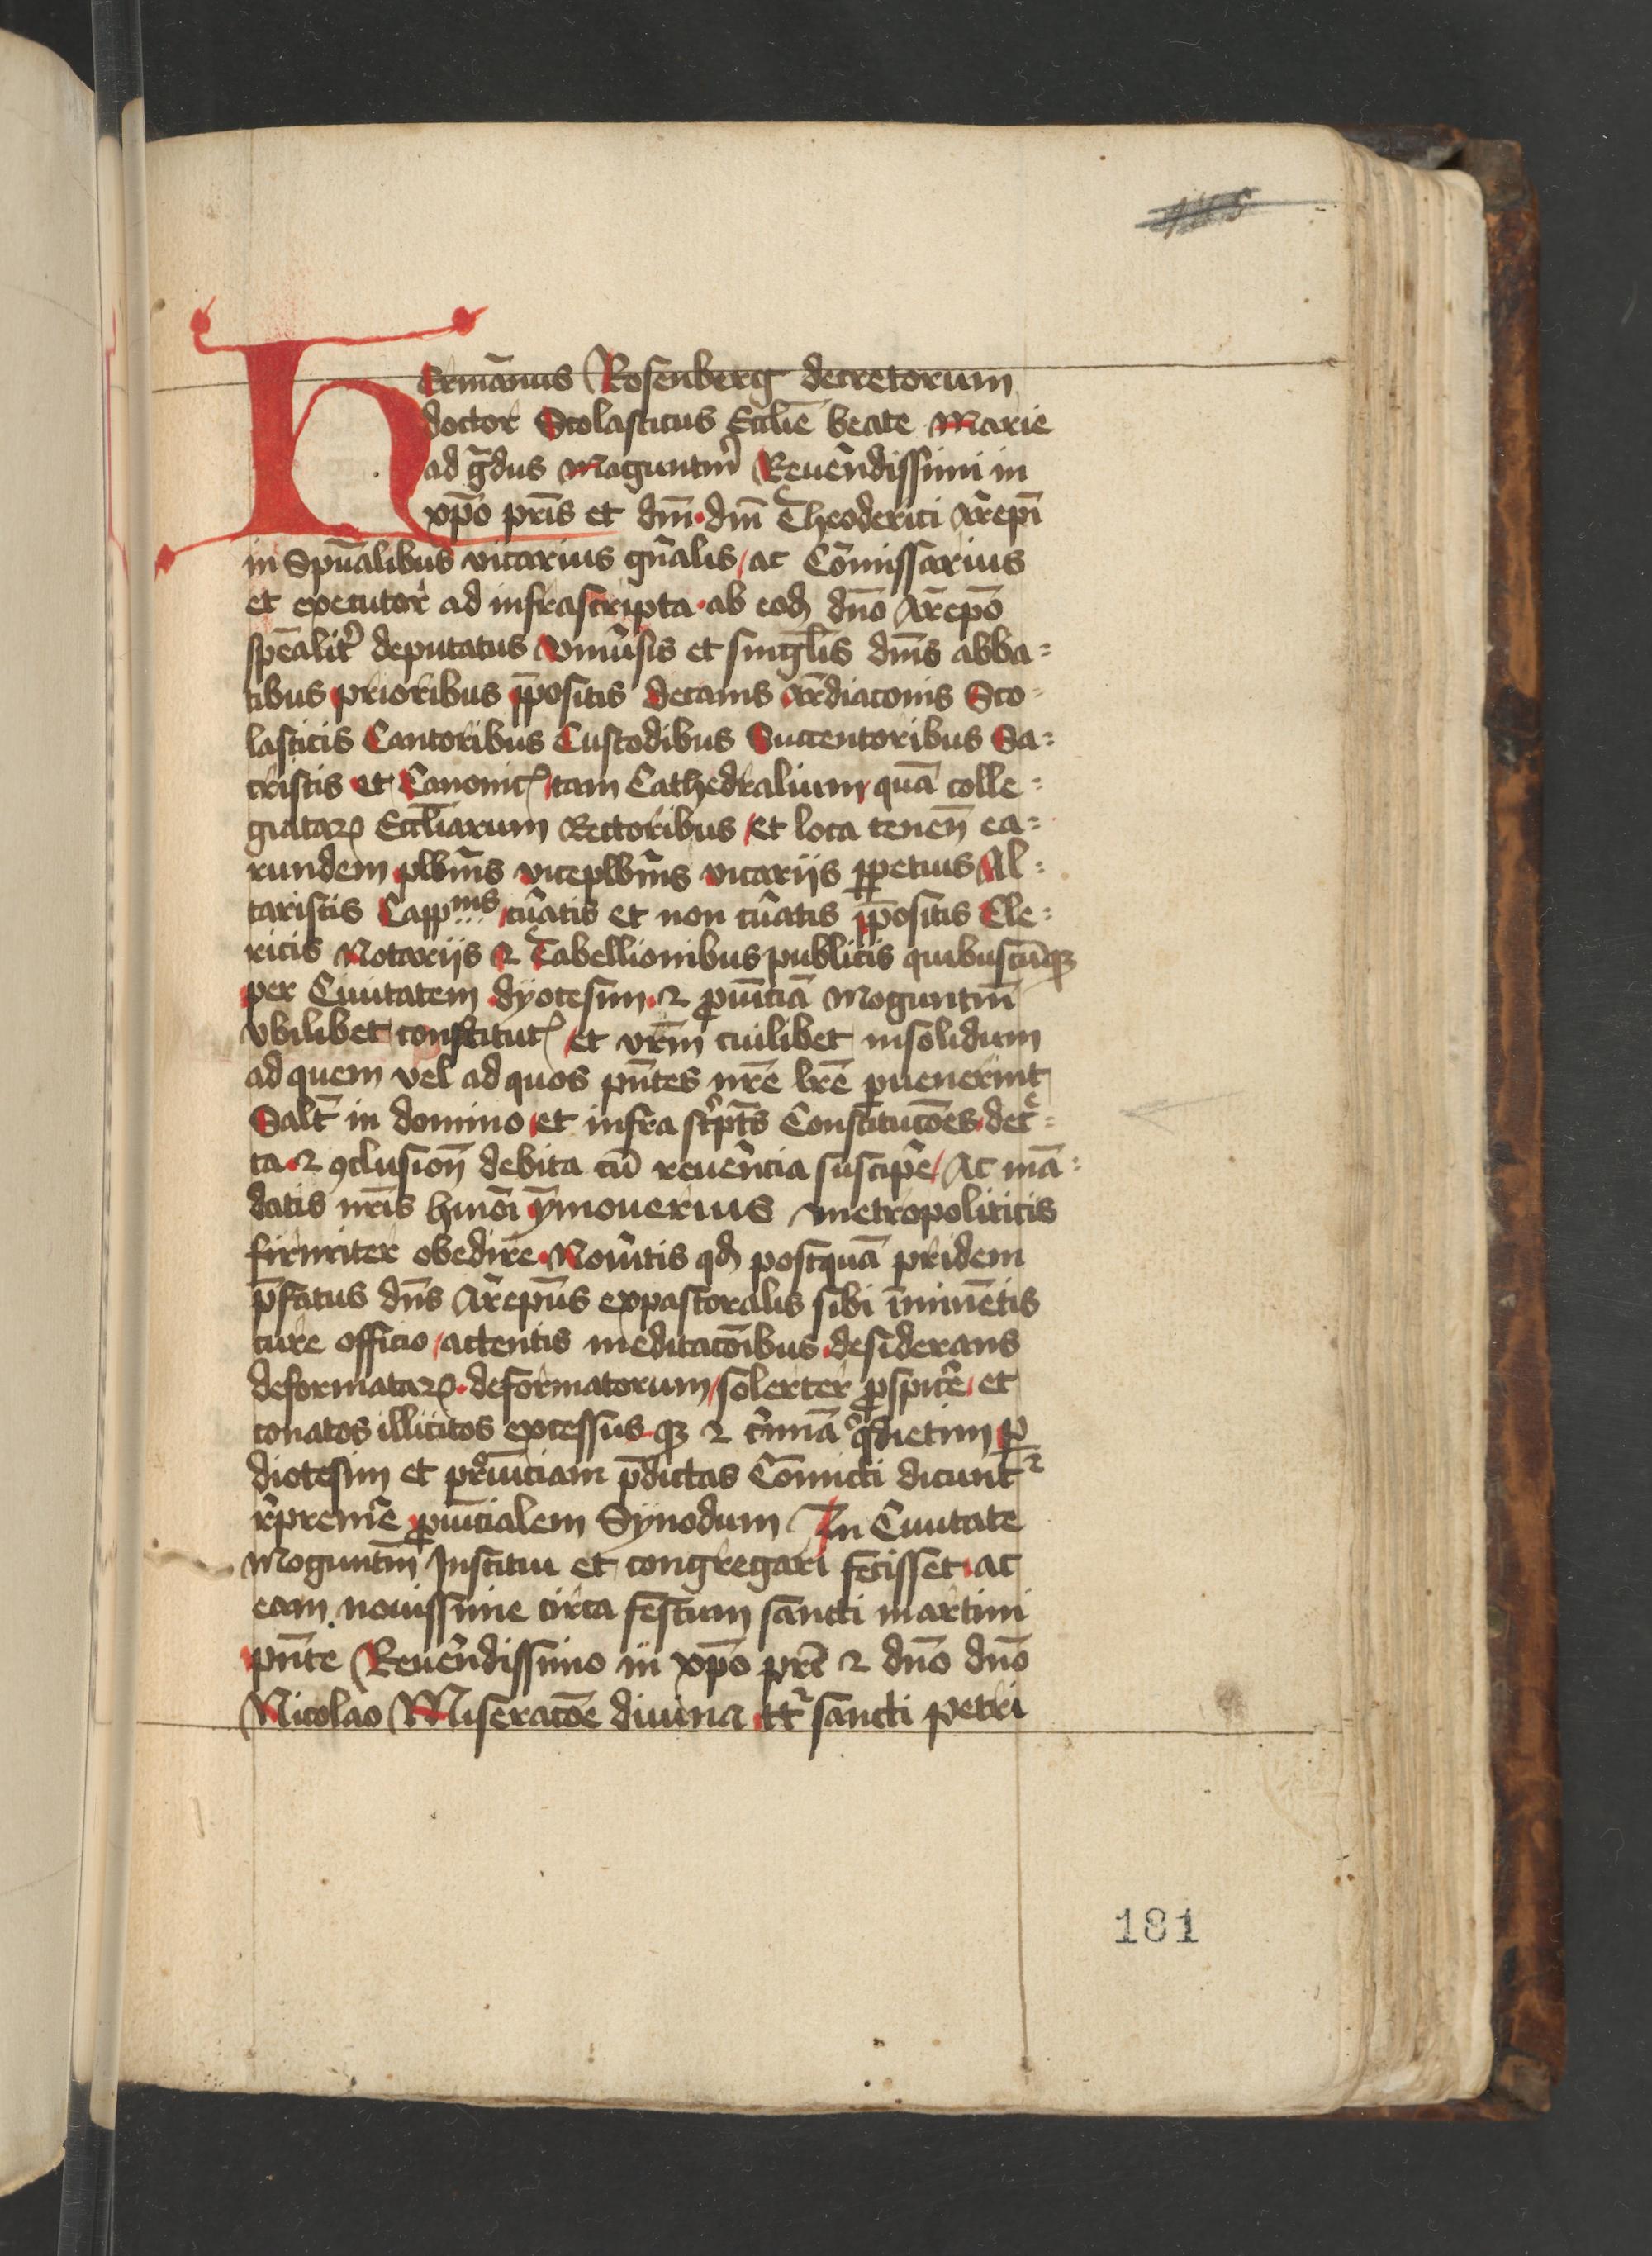 Hermānus Rosenberg decretorum
doctor Scolasticus Ecclīe beate Marie
ad g̃dus Maguntiñ Reuēndissimi in
xp̄o pr̄is et dn̄i dn̄i Theoderici Ar̄epī
in Sp̄ualibus vicarius gn̄alis / ac Cōmissarius
et executor ad infrascripta ab eod̄ dn̄o Ar̄epō
sp̄ealit̄ deputatus Vniūsis et singl̄is dn̄is abba=
tibus prioribus p̄positis decanis Ar̄diaconis Sco=
lasticis Cantoribus Custodibus Succentoribus Sa=
cristis et Canonic̄ tam Cathedralium quā colle=
giataꝝ Eccl̄iarum Rectoribus / et loca teneñ ea=
rundem plb̄nis viceplb̄nis vicariis ꝑpetuis Al=
taristis Capp^nis cūatis et non cūatis p̄positis Cle=
ricis Notariis ⁊ Tabellionibus publicis quibuscūqꝫ
per Ciuitatem dyocesim ⁊ ꝓuīciā Moguntiñ
vbilibet constitut̄ et vr̄m cuilibet insolidum
ad quem vel ad quos pn̄tes nr̄e lr̄e ꝑuenerint
Salt̄ in domino et infra scp̄ts Constitucōes dec̄=
ta ⁊ ꝯclusioñ debita cū reuēncia suscipe / Ac mā=
datis nr̄is hmōi ymouerius metropoliticis
firmiter obedire Noūitis qd̄ postquā pridem
p̄fatus dn̄s Ar̄epūs ex pastoralis sibi īminētis
cure officio / actentis meditacōibus desiderans
deformataꝝ deformatorum / solerter ꝓspicē et
conatos illicitos excessus qꝫ ⁊ cīmā q̊tietim ꝑ
diocesim et pr̄uīciam p̄dictas Cōmicti dicunt^r
r̄premē ꝓuīcialem Synodum In Ciuitate
Moguntiñ Institui et congregari fecisset ac
eam nouissime circa festum sancti martini
pn̄te Reuēndissimo in xp̄o pr̄e ⁊ dn̄o dn̄o
Nicolao Miseracōe diuina tt̄ sancti petri
181